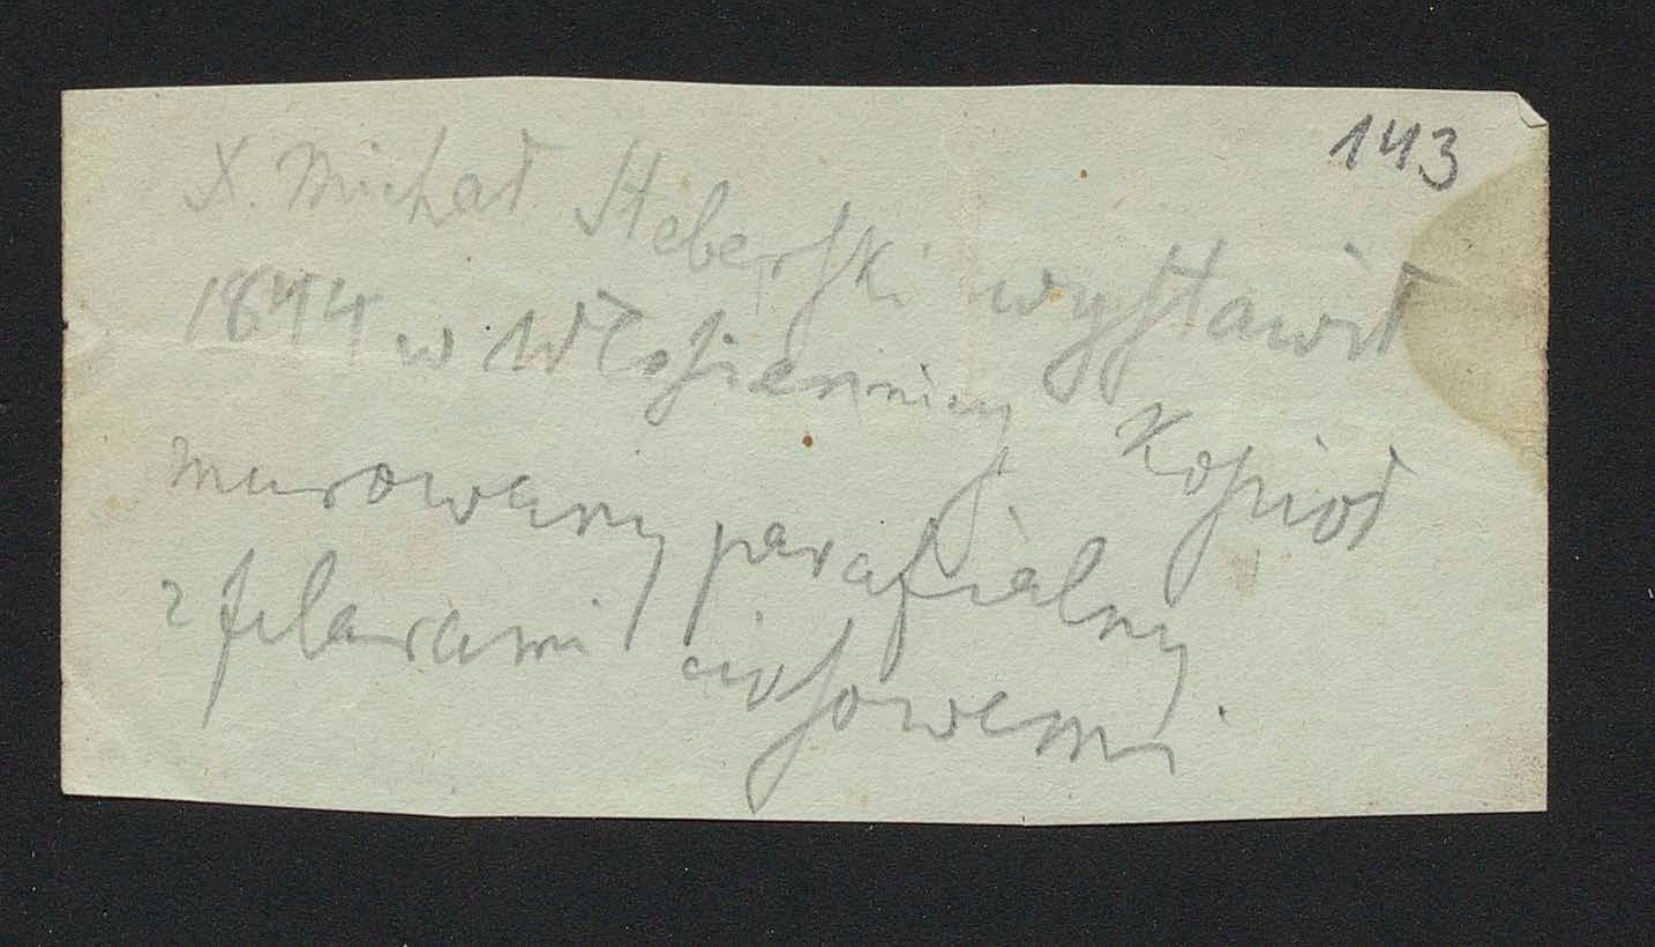 143
X. Michał Steberski wystawił
1844 w Włosiennicy Kościoł
murowany parafialny
z filarami ciosowemi.